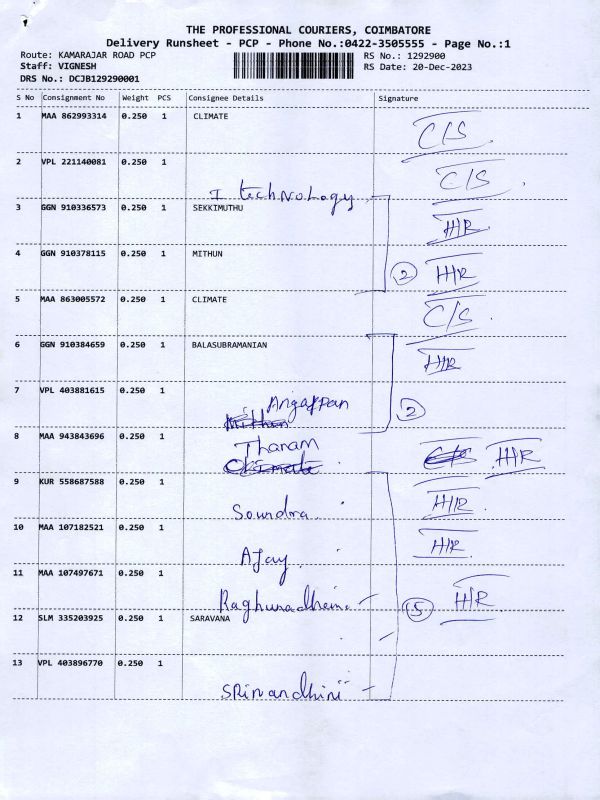 THE PROFESSIONAL COURIERS, COIMBATORE
Delivery Runsheet - PCP - Phone No.:0422-3505555 - Page No.:1
Route: KAMARAJAR ROAD PCP
RS No.: 1292900
Staff: VIGNESH
RS Date: 20-Dec-2023
DRS No.: DCJB129290001
S No Consignment No Weight PCS Consignee Details Signature
1 MAA 862993314 0.250 1 CLIMATE C/S
2 VPL 221140081 0.250 1 I technology C/S
3 GGN 910336573 0.250 1 SEKKIMUTHU H/R
4 GGN 910378115 0.250 1 MITHUN 2 H/R
5 MAA 863005572 0.250 1 CLIMATE C/S
6 GGN 910384659 0.250 1 BALASUBRAMANIAN H/R
7 VPL 403881615 0.250 1 Angappan 2
8 MAA 943843696 0.250 1 Tharam C/S H/R
9 KUR 558687588 0.250 1 Soundra H/R
10 MAA 107182521 0.250 1 Ajay H/R
11 MAA 107497671 0.250 1 5 H/R
12 SLM 335203925 0.250 1 SARAVANA
13 VPL 403896770 0.250 1 SRinandhini